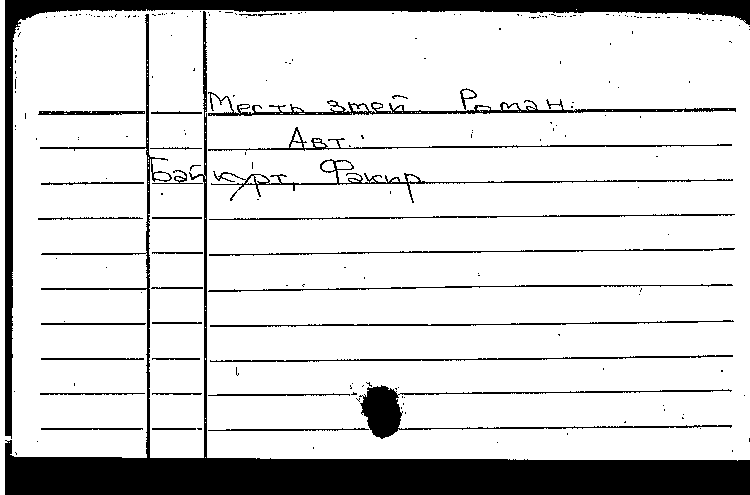 Месть змей. Роман.
Авт.:
Байкурт, Факир